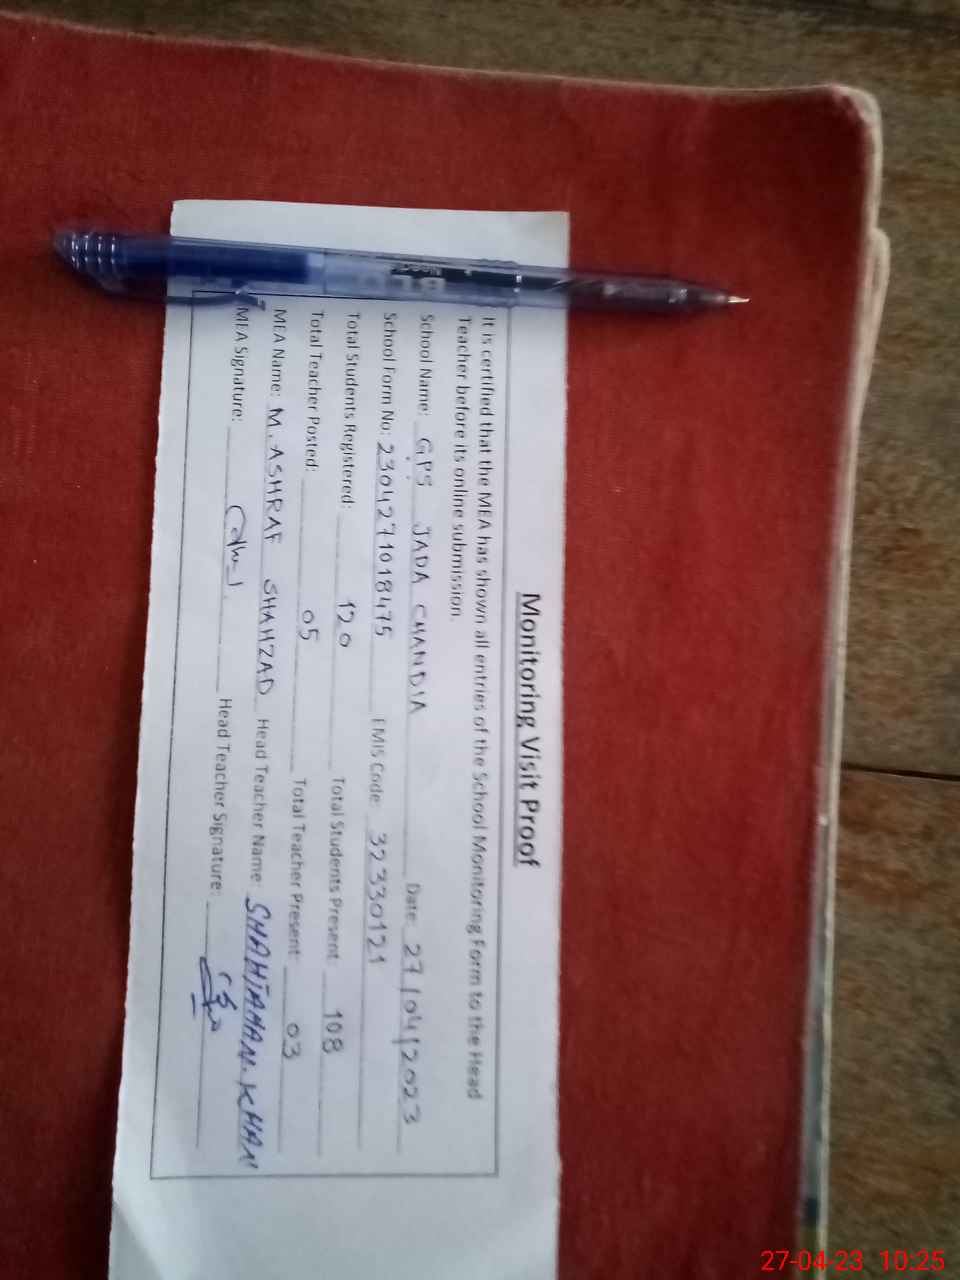 Monitoring Visit Proof
It is certified that the MEA has shown all entries of the School Monitoring Form to the Head
Teacher before its online submission.
School Name: GPS JADA CHANDIA Date: 27/04/2023
School Form No: 2304271018475 EMIS Code: 32330121
Total Students Registered: 120 Total Students Present: 108
Total Teacher Posted: 05 Total Teacher Present: 03
MEA Name: M. ASHRAF SHAHZAD Head Teacher Name: SHAHJAHAN KHAN
MEA Signature: Head Teacher Signature:
27-04-23 10:25